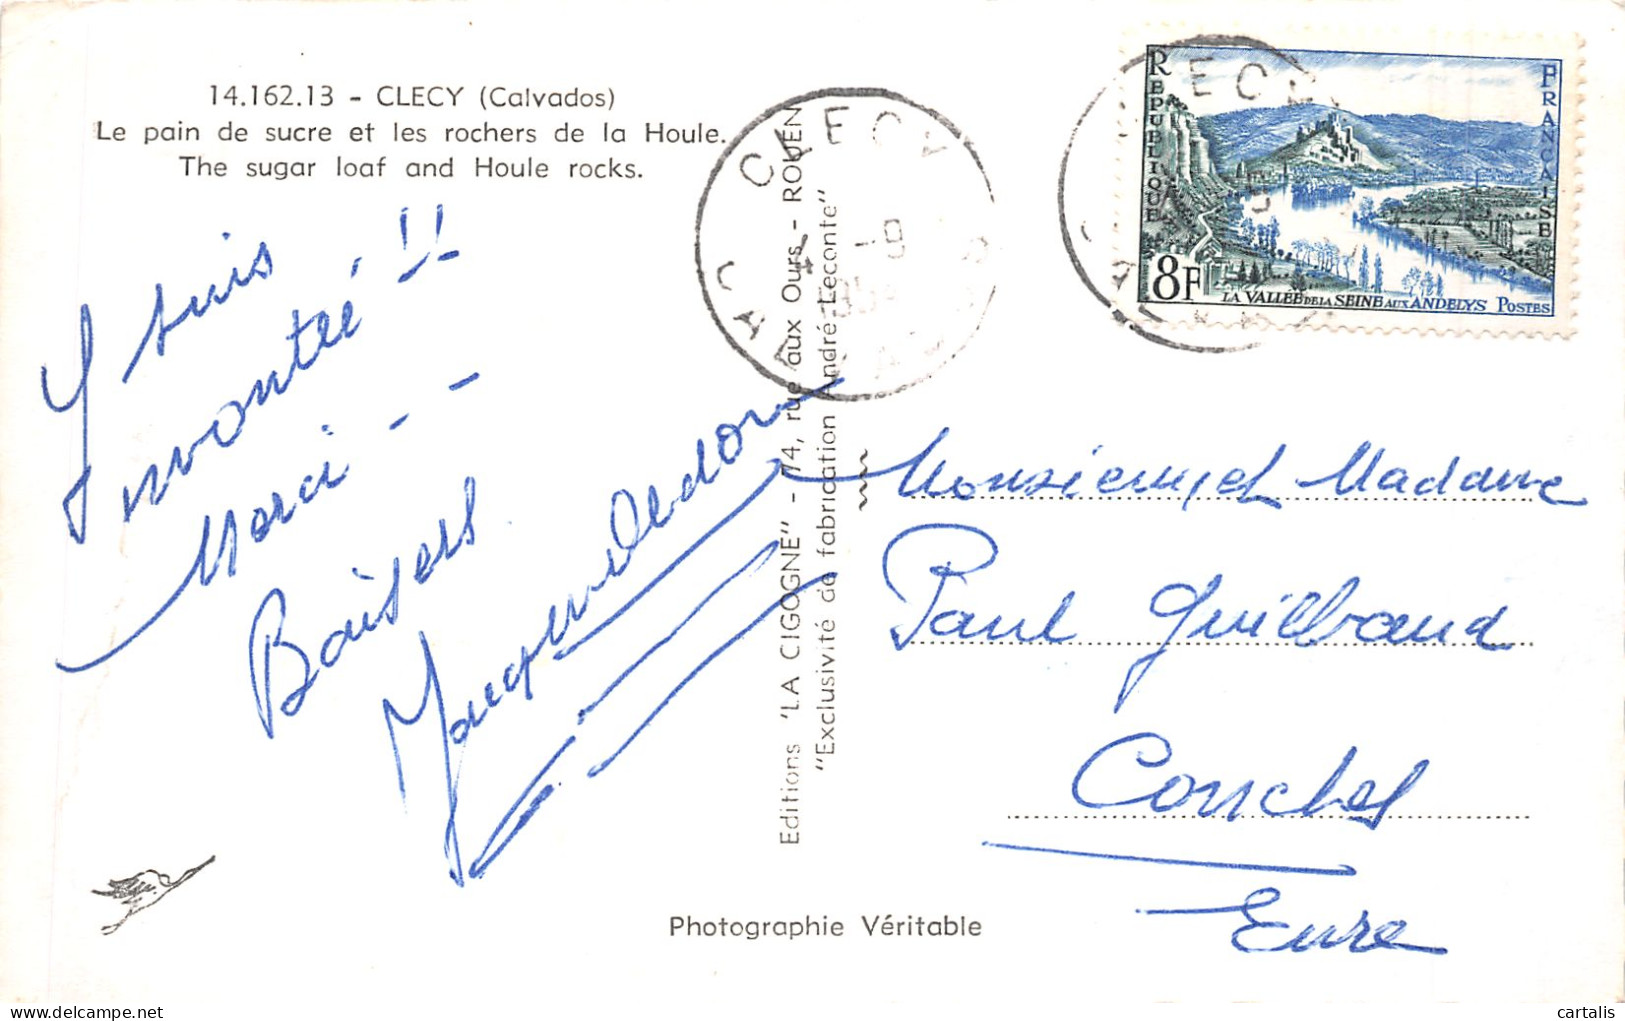 14.162.13 - CLECY (Calvados)
Le pain de sucre et les rochers de la Houle.
The sugar loaf and Houle rocks.
J'y suis
montée !!
Merci - -
Baisers
Editions "LA CIGOGNE" - 74, rue aux Ours - ROUEN
"Exclusivité de fabrication André Leconte"
Photographie Véritable
CLECY
CALVADOS
REPUBLIQUE
FRANCAISE
8F
LA VALLEE DE LA SEINE AUX ANDELYS POSTES
Monsieur et Madame
Paul Guilbaud
Conches
Eure
cartalis